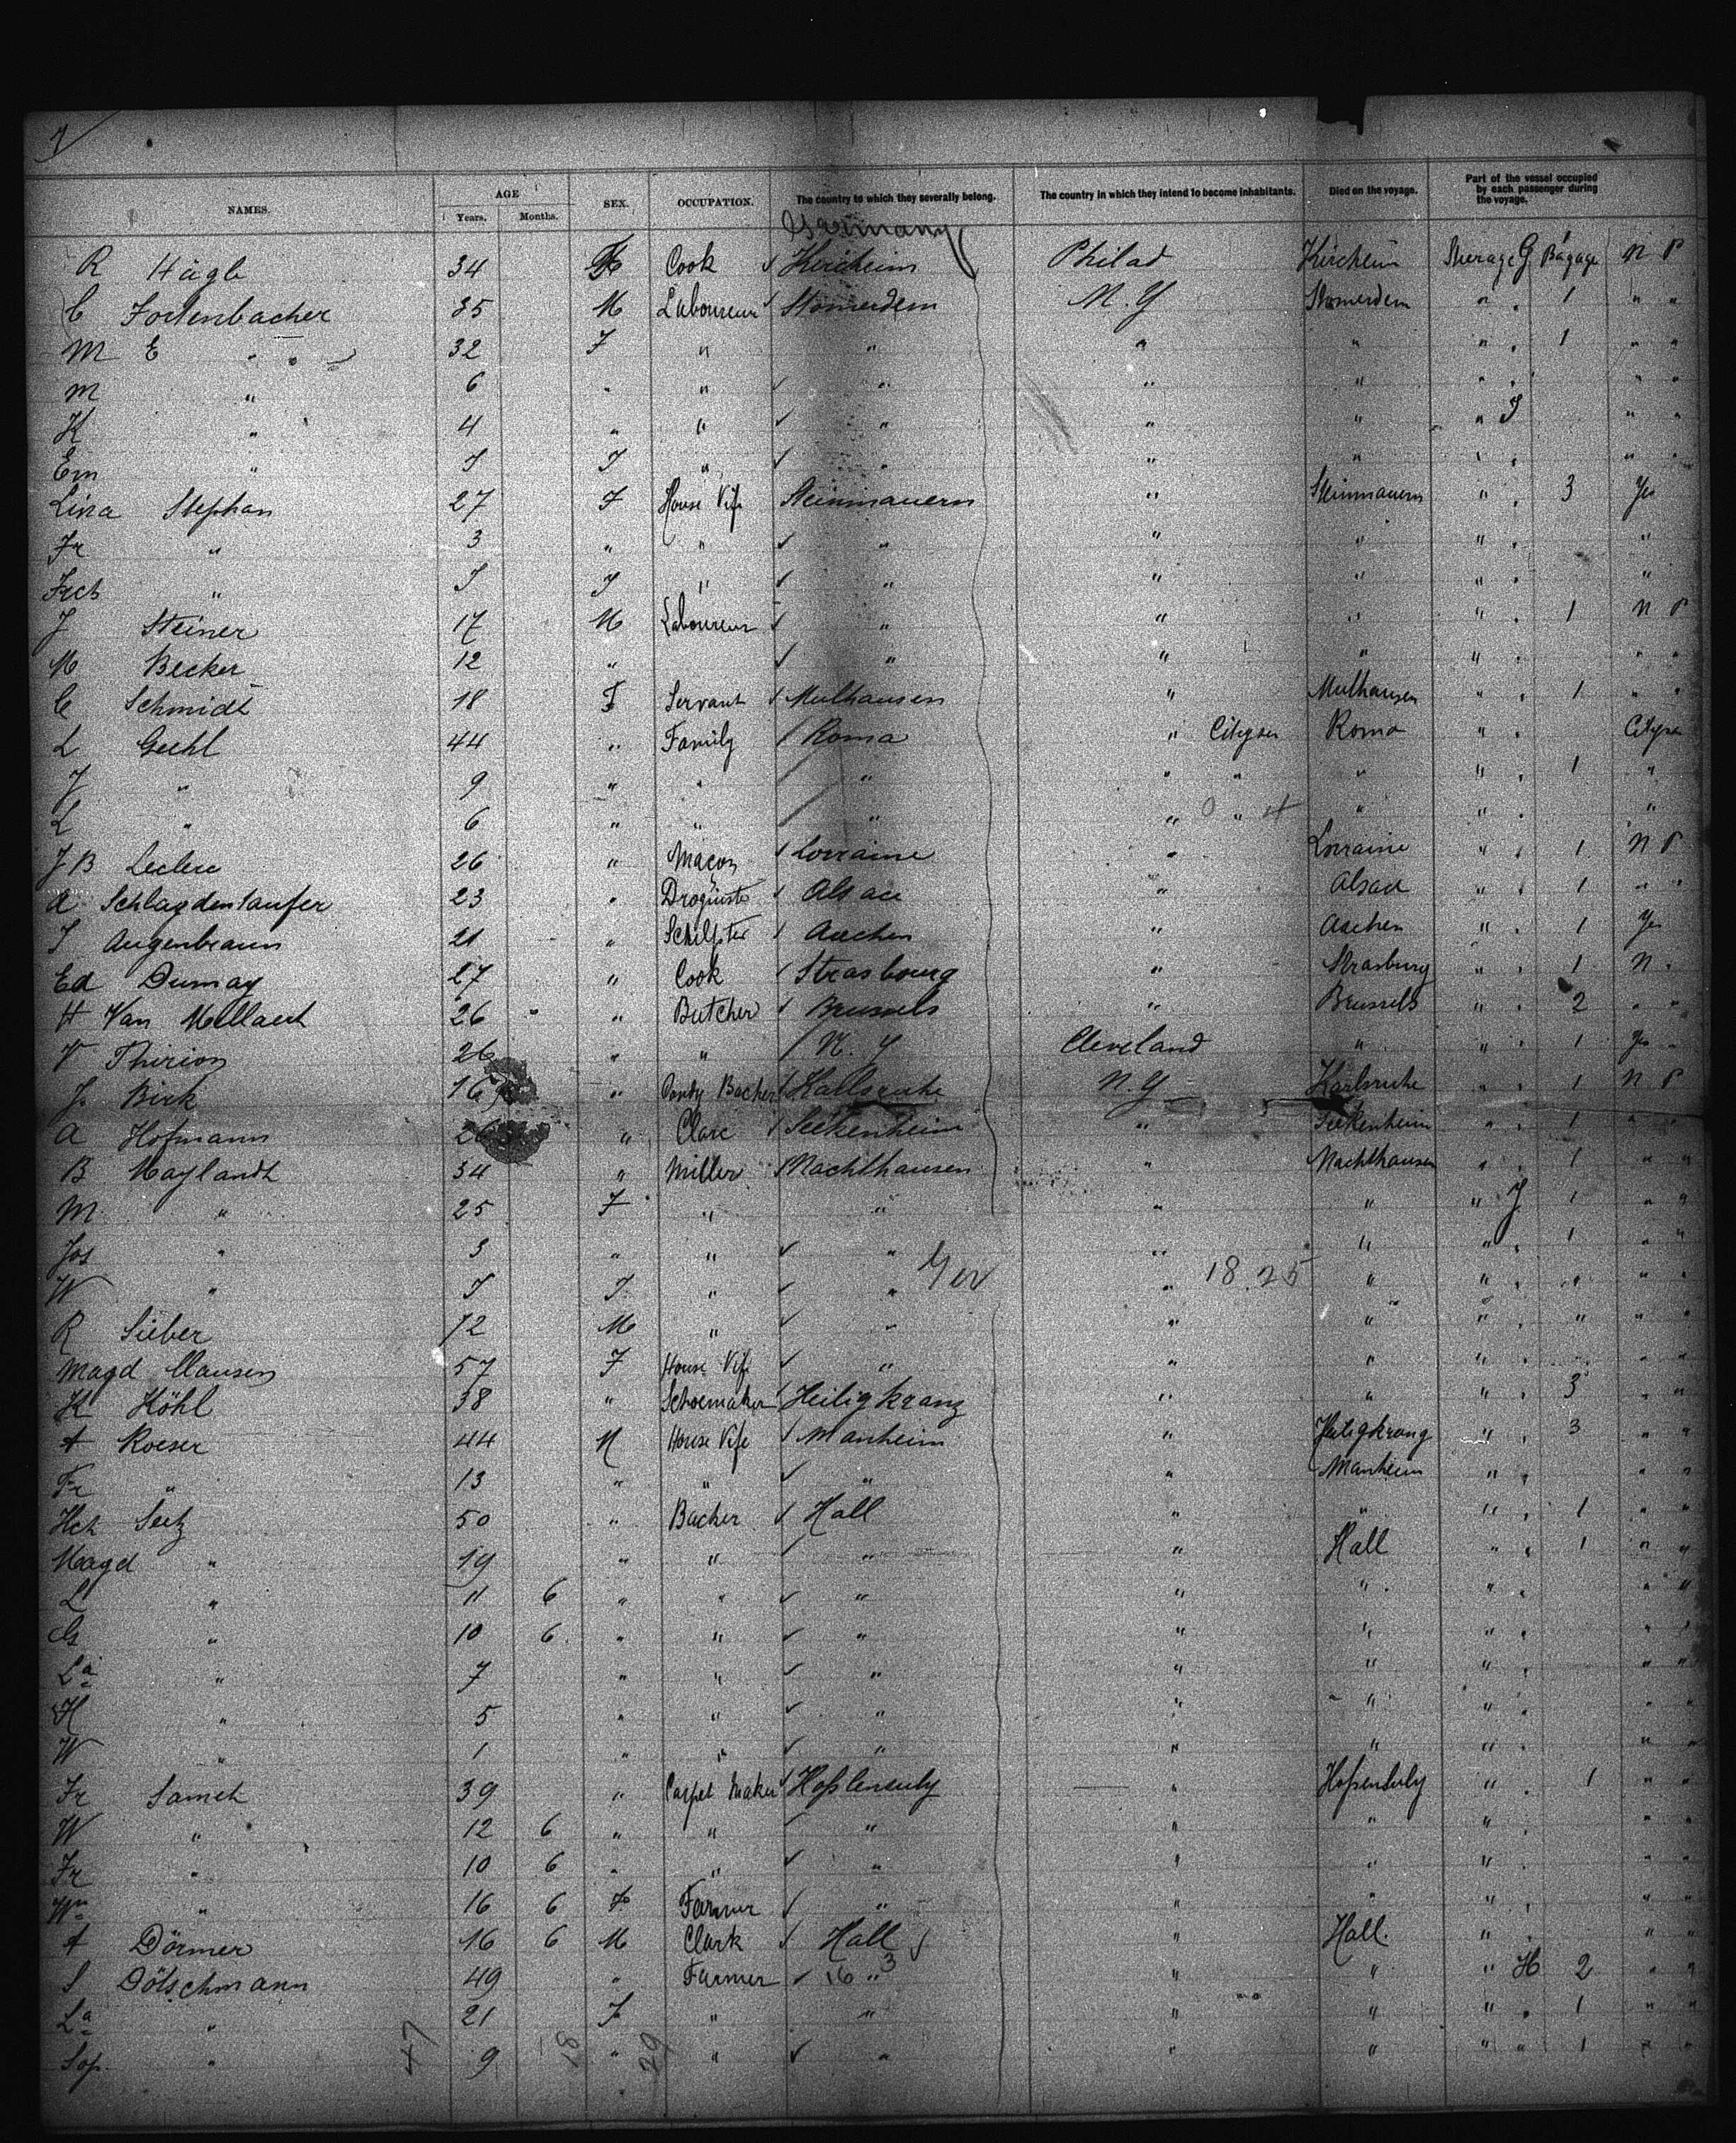 7
NAMES. AGE Years. Months. SEX. OCCUPATION. The country to which they severally belong. The country in which they intend to become inhabitants. Died on the voyage. Part of the vessel occupied by each passenger during the voyage.
Germany
R Hägle 34 F Cook Kircheim Philad Kircheim Sterage G 1 Bagage n P
C Fortenbacher 35 M Laboureur Stomerdem N.Y Stomerdem " " 1 " "
M E " " 32 F " " " " " " 1 " "
M " 6 " " " " " " " " "
K " 4 " " " " " " J " "
Em " J J " " " " " " " "
Lina Stephan 27 F House Vife Steinmauern " Steinmauern " " 3 Yes
Fr " 3 " " " " " " " "
Frch " J J " " " " " " "
J Steiner 17 M Laboureur " " " " " 1 n P
M Becker 12 " " " " " " " "
C Schmidt 18 F Servant Mulhausen " Mulhausen " " 1 " "
L Guhl 44 " Family Roma " Cityzen Roma " " Cityzen
J " 9 " " " " " " " " 1 "
L " 6 " " " " " " " " "
J B Leclerc 26 " Maçon Lorraine " Lorraine " " 1 n P
A Schlagdenlaufer 23 " Droguiste Alsace " Alsace " " 1 " "
J Augenbraun 21 " Aachen " Aachen " " 1 Yes
Ed Dumay 27 " Cook Strasbourg " Strasburg " " 1 n "
H Van Mellaert 26 " Butcher Brussels " Brussels " " 2 " "
V Thirion 26 " " N. Y Cleveland " " " 1 Yes "
J. Birk 16 " Candy Backer Karlsruhe N.Y Karlsruhe " " 1 n P
A Hofmann 26 " Clarc Seckenheim " Seckenheim " " 1 " "
B Maylandt 34 " Miller Nachthausen " Nachthausen " " 1 " "
M " 25 F " " " " " J 1 " "
Jos " 3 " " " " " " " 1 " "
W " J J " " Ger " 18.25 " " " " " "
R Sieber 12 M " " " " " " " " "
Magd Clausen 57 F House Vife " " " " " " "
K Köhl 38 " Schoemaker Heiligkranz " " " " 3 " "
A Roeser 44 M House Vife Manheim " Heiligkranz " " 3 " "
Fr " 13 " " " " Manheim " " " "
Hch Seitz 50 " Backer Hall " " " " 1 " "
Magd " 19 " " " " Hall " " 1 " "
L " 11 6 " " " " " " " " "
G " 10 6 " " " " " " " " "
La " 7 " " " " " " " " "
H " 5 " " " " " " " " "
W " 1 " " " " " " " " "
Fr Sameh 39 " Carpet Maker " " " 1 " "
W " 12 6 " " " " " " " " "
Fr " 10 6 " " " " " " " " "
Wm " 16 6 F Farmer " " " " " " "
A Dörmer 16 6 M Clark Hall " Hall. " " " "
S Dötschmann 49 " Farmer 16 " 3 " " " H 2 " "
La " 21 F " " " " " " 1 " "
Sop. " 9 " " " " " " " 1 " "
47 18 29